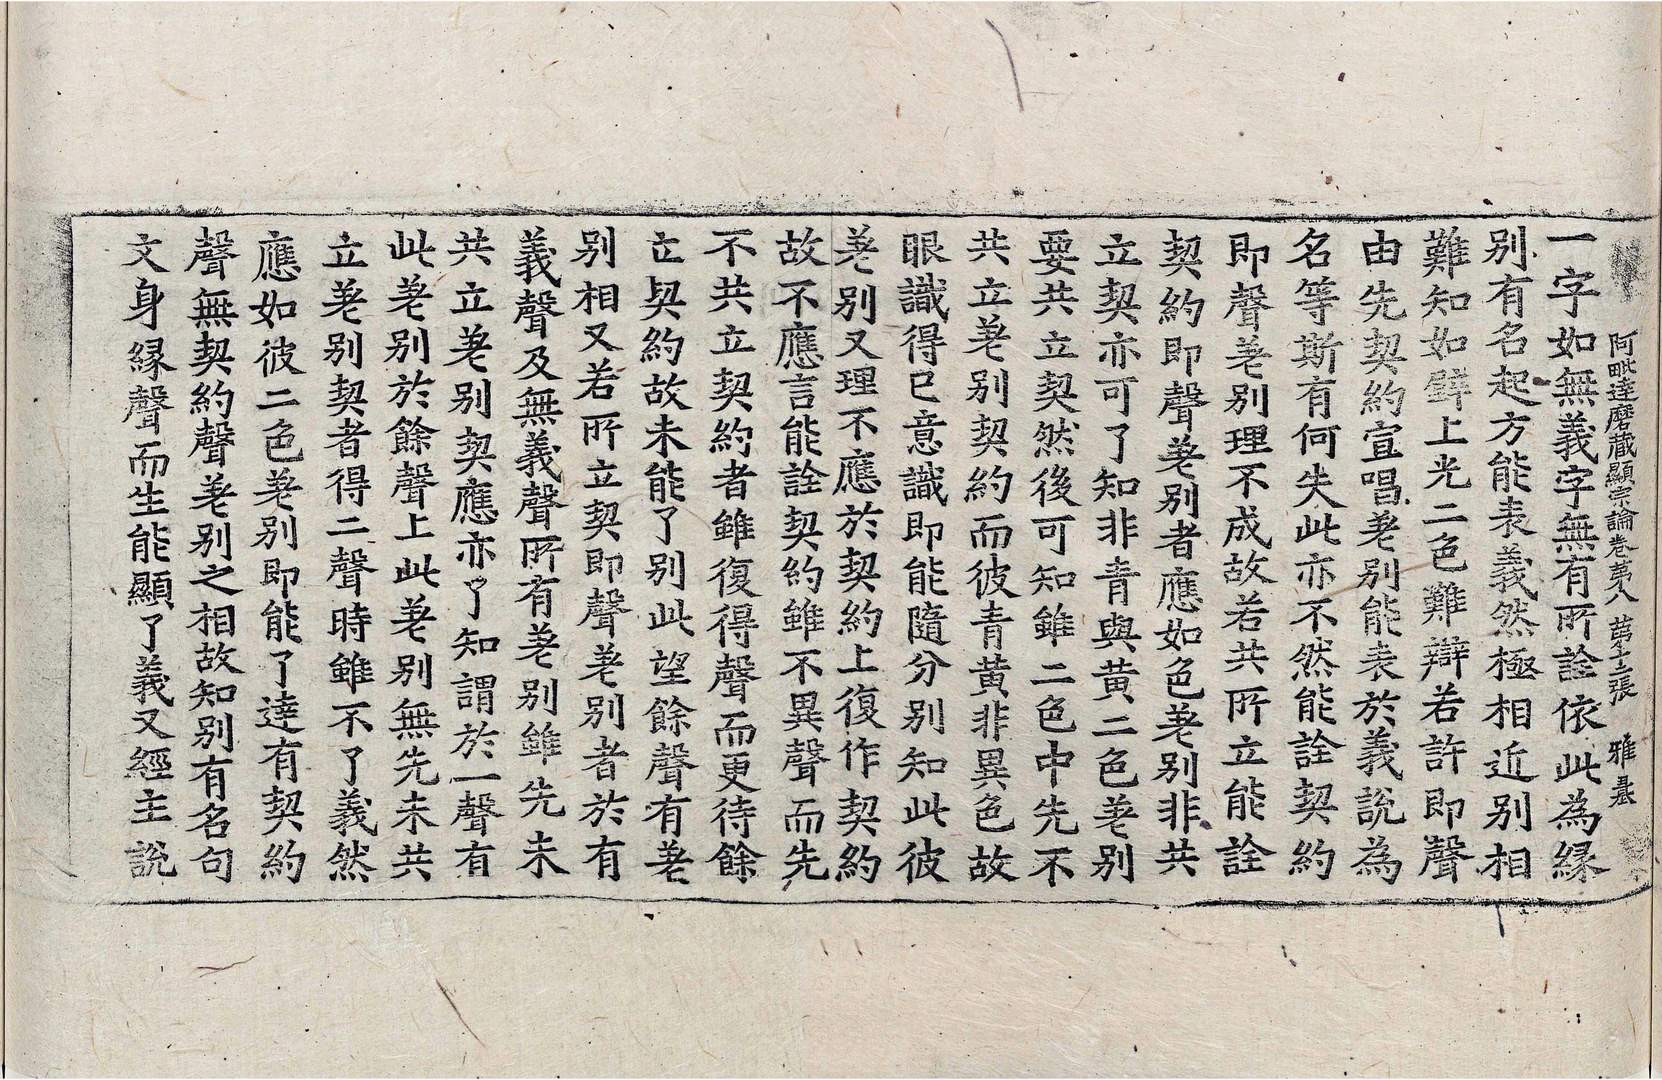 阿毗達磨藏顯宗論卷第八 第十二張 雅
一字如無義字無有所詮依此為緣
別有名起方能表義然極相近別相
難知如鐸上光二色難辯若許即聲
由先契約宣唱差別能表於義說為
名等斯有何失此亦不然能詮契約
即聲差別理不成故若共所立能詮
契約即聲差別者應如色差別非共
立契亦可了知非青與黃二色差別
要共立契然後可知雖二色中先不
共立差別契約而彼青黃非異色故
眼識得已意識即能隨分別知此彼
差別又理不應於契約上復作契約
故不應言能詮契約雖不異聲而先
不共立契約者雖復得聲而更待餘
立契約故未能了別此望餘聲有差
別相又若所立契即聲差別者於有
義聲及無義聲所有差別雖先未
共立差別契應亦了知謂於一聲有
此差別於餘聲上此差別無先未共
立差別契者得二聲時雖不了義然
應如彼二色差別即能了達有契約
聲無契約聲差別之相故知別有名句
文身緣聲而生能顯了義又經主說